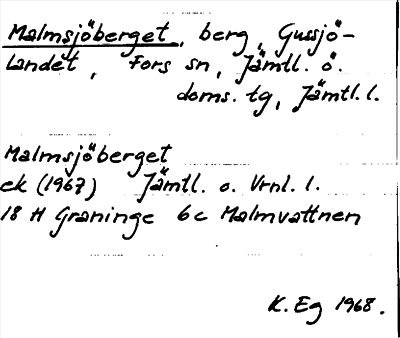 Malmsjöberget, berg, Gussjö-
landet, Fors sn, Jämtl. ö.
doms. tg, Jämtl. l.
Malmsjöberget
ek (1967) Jämtl. o. Vrnl. l.
18 H Graninge 6c Malmvattnen
K. Eg 1968.